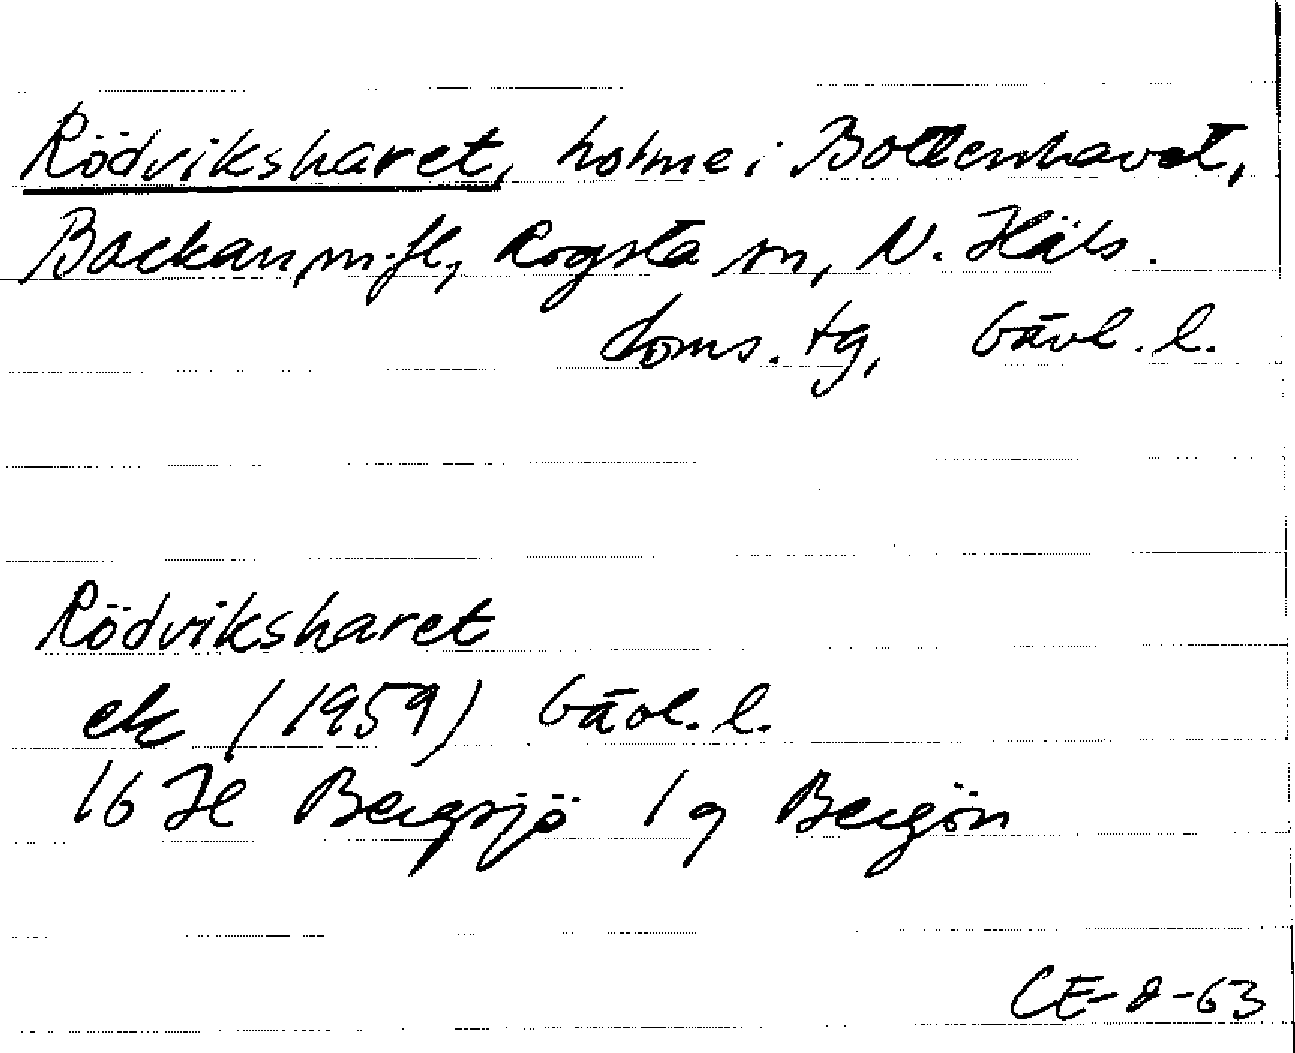 Rödviksharet, holme i Bottenhavet,
Backan m.fl., Rogsta sn, N. Häls.
doms. tg, Gävl. l.
Rödviksharet
ek (1959) Gävl. l.
16 H Bergsjö 1 g Bergön
CE-8-63